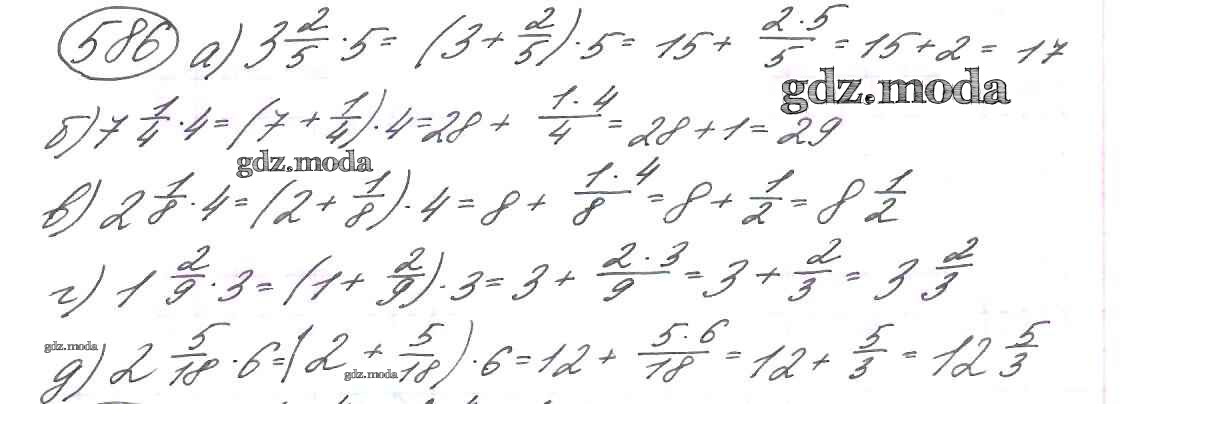 586 а) 3 2/5 · 5 = (3 + 2/5) · 5 = 15 + 2·5/5 = 15 + 2 = 17
gdz.moda
б) 7 1/4 · 4 = (7 + 1/4) · 4 = 28 + 1·4/4 = 28 + 1 = 29
gdz.moda
в) 2 1/8 · 4 = (2 + 1/8) · 4 = 8 + 1·4/8 = 8 + 1/2 = 8 1/2
г) 1 2/9 · 3 = (1 + 2/9) · 3 = 3 + 2·3/9 = 3 + 2/3 = 3 2/3
gdz.moda
д) 2 5/18 · 6 = (2 + 5/18) · 6 = 12 + 5·6/18 = 12 + 5/3 = 12 5/3
gdz.moda